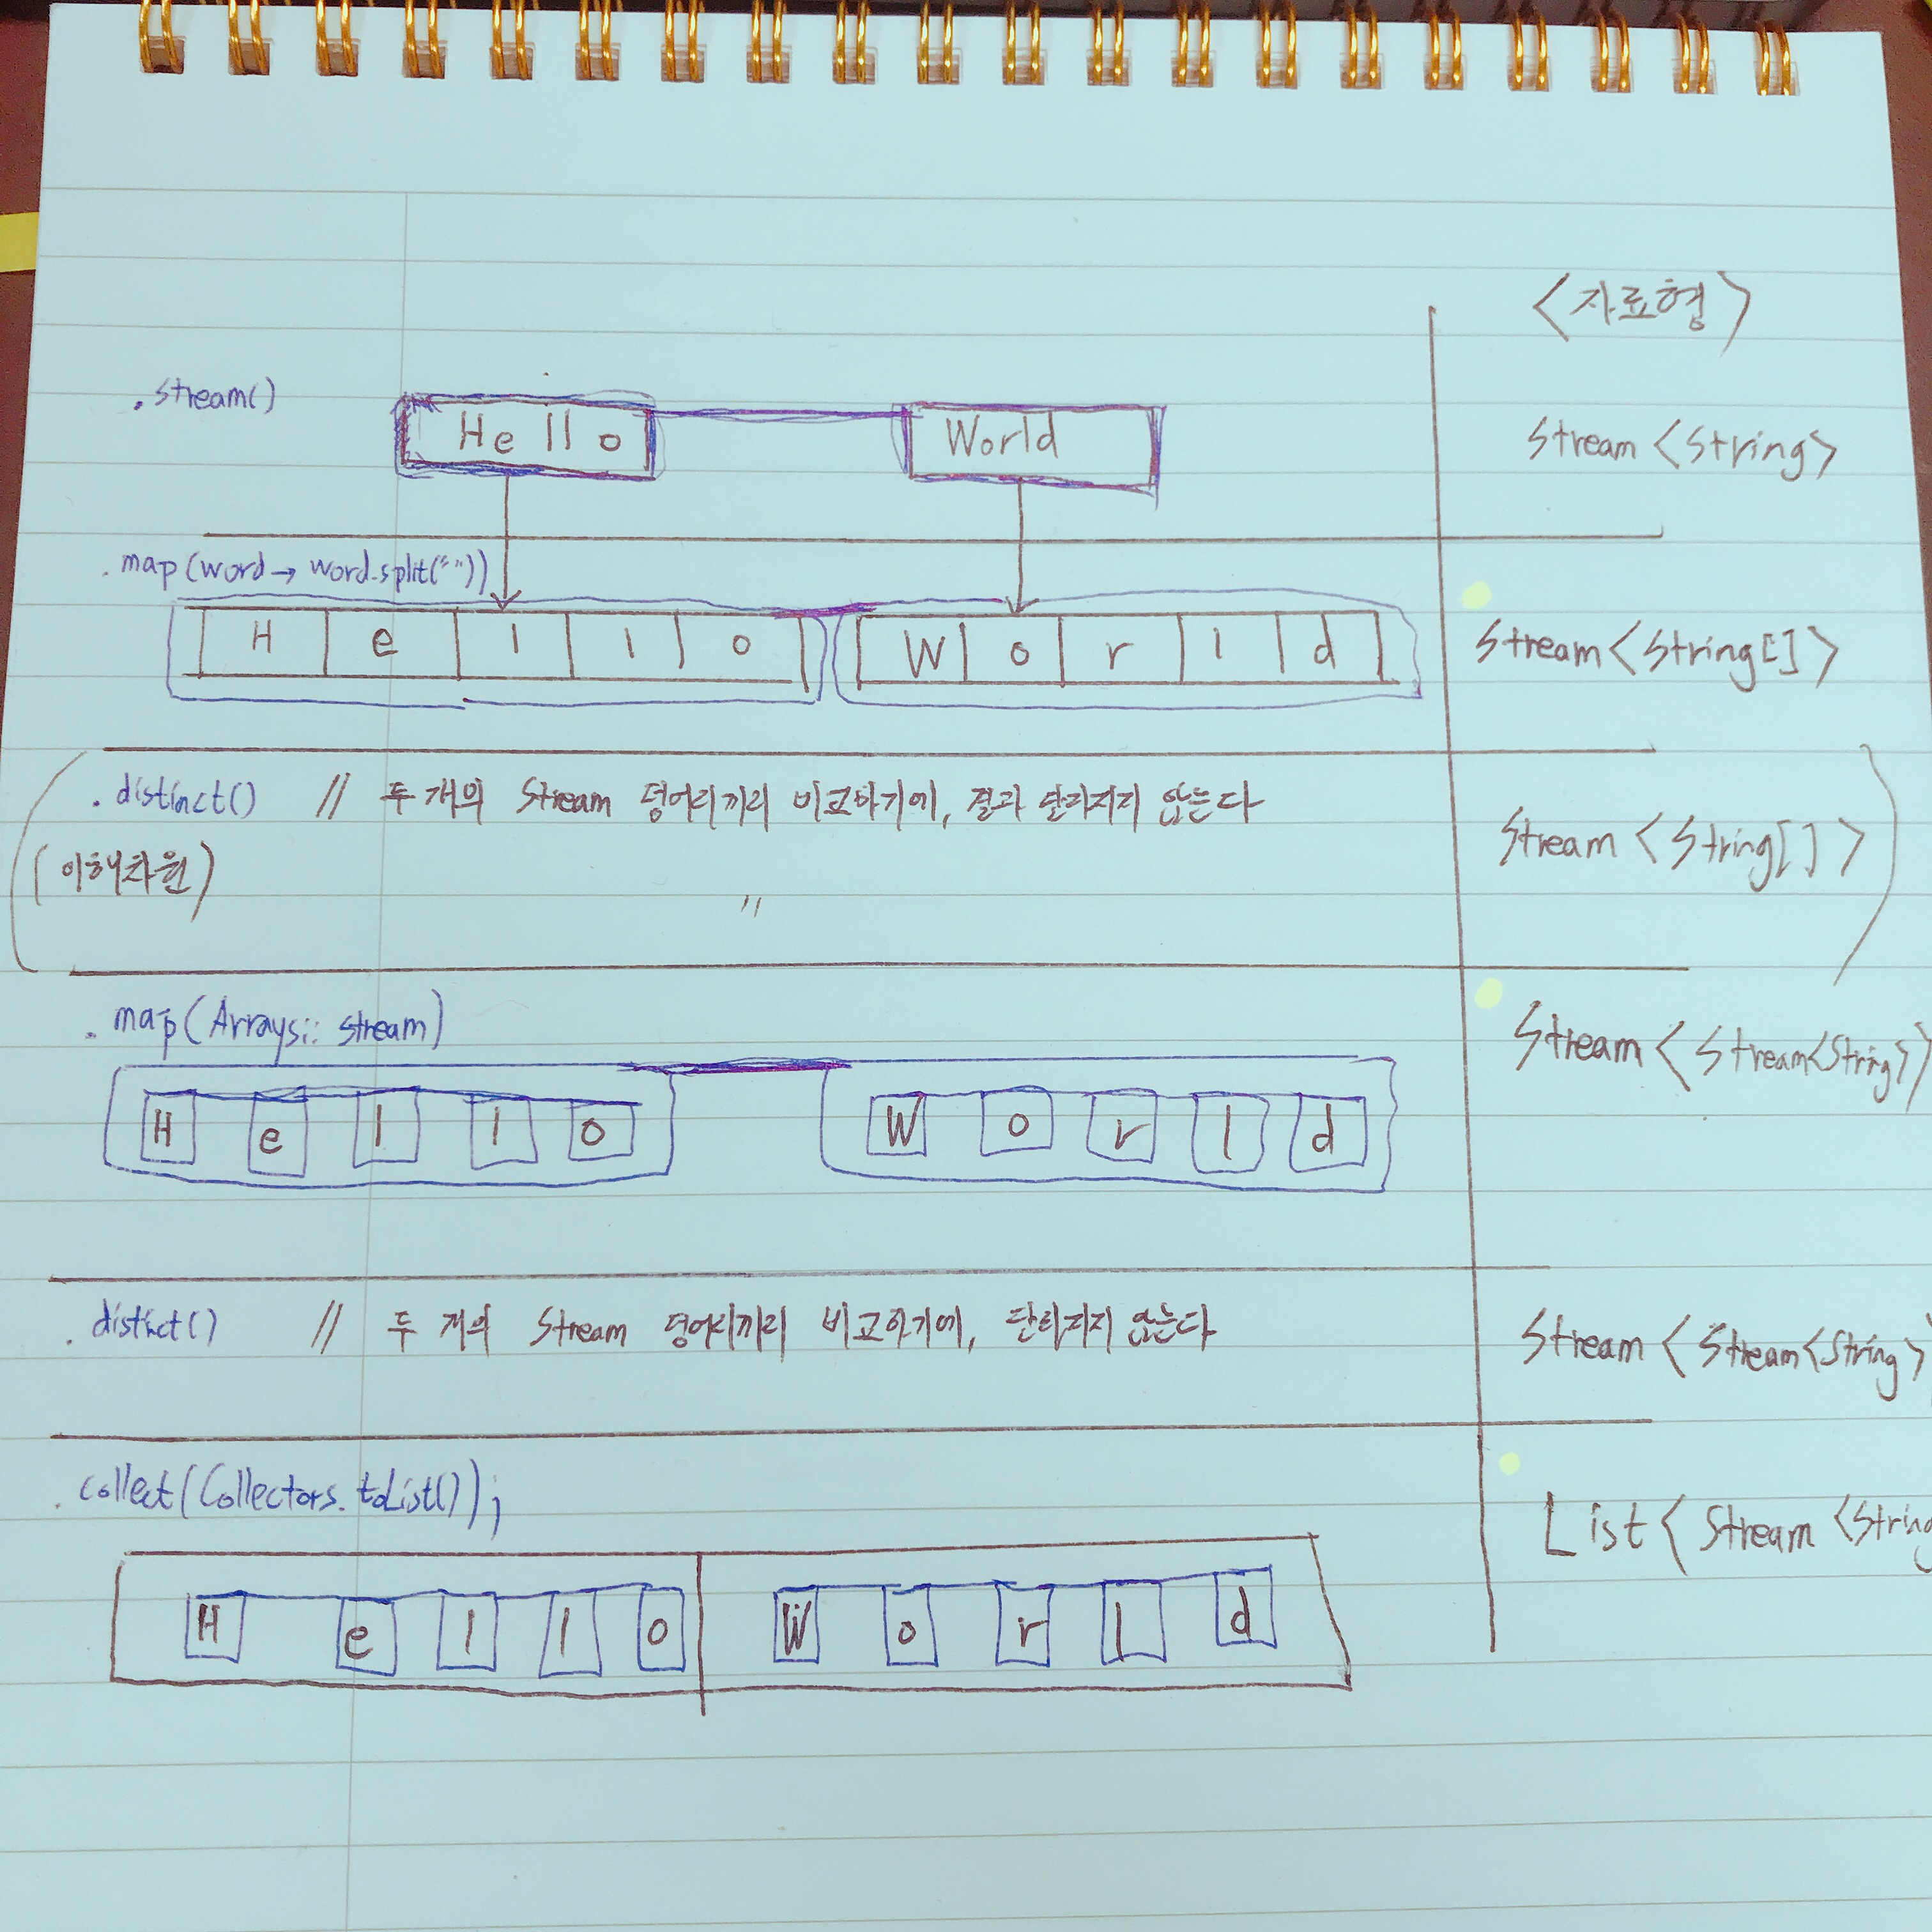 <자료형>
.stream()
Hello World
Stream<String>
.map(word→word.split(""))
H e l l o W o r l d
Stream<String[]>
.distinct() // 두 개의 Stream 덩어리끼리 비교하기에, 결과 달라지지 않는다
Stream<String[]>
(이해차원)
"
.map(Arrays::stream)
Stream<Stream<String>>
H e l l o W o r l d
.distinct() // 두 개의 Stream 덩어리끼리 비교하기에, 달라지지 않는다
Stream<Stream<String>
.collect(Collectors.toList());
List<Stream<String
H e l l o W o r l d